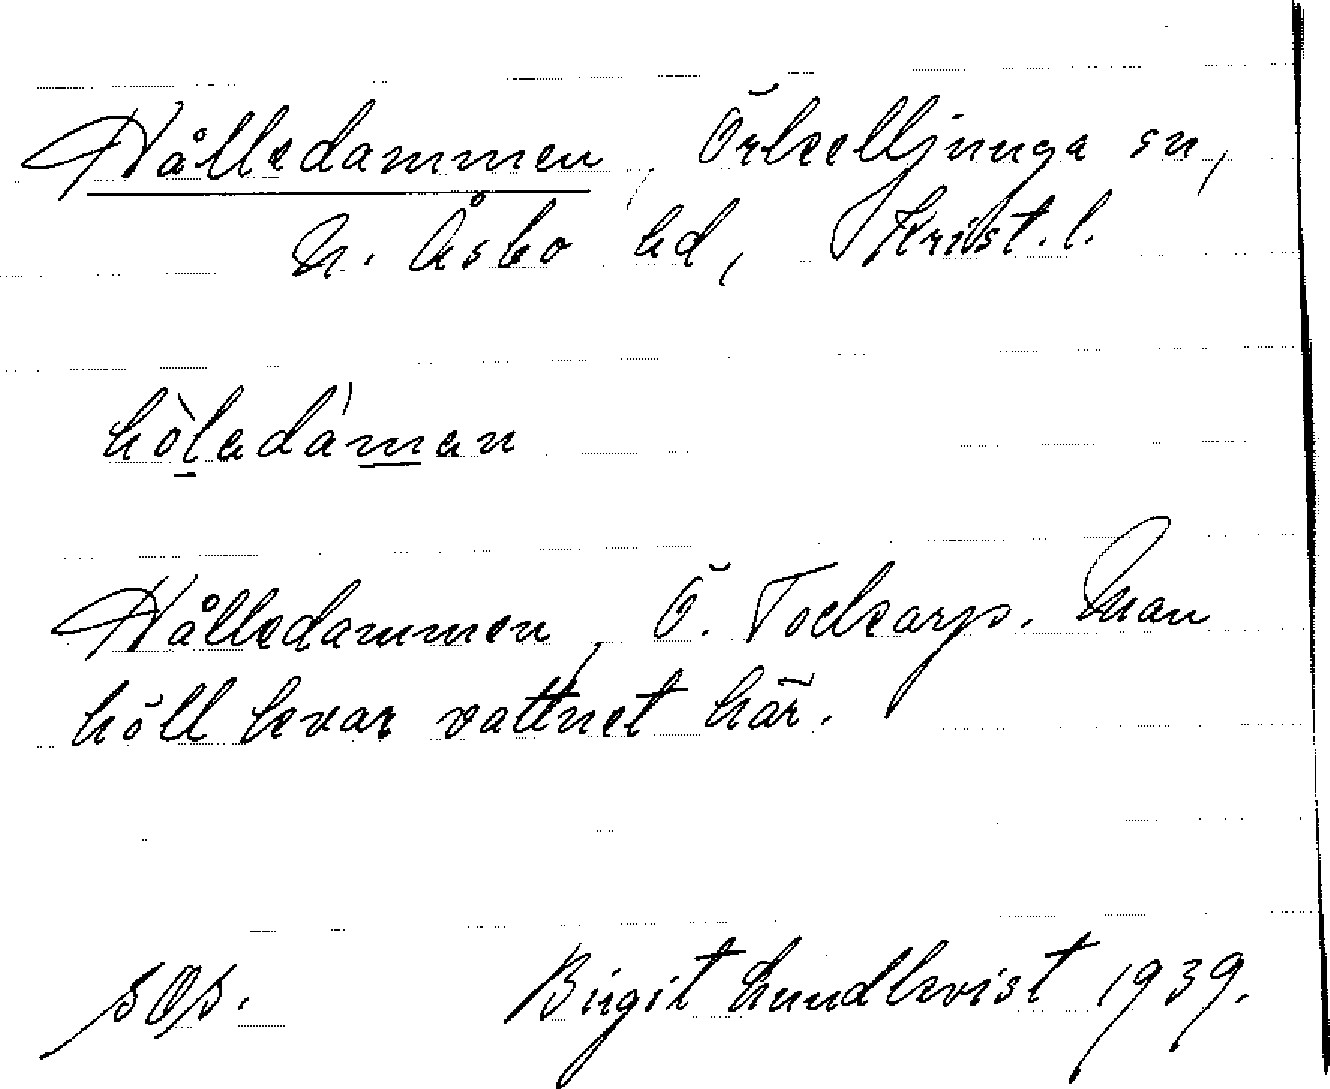 Hålledammen, Örkelljunga sn,
N. Åsbo hd, Krist. l.
hòledá'man
Hålledammen, Ö. Tockarp. Man
höll kvar vattnet här.
Birgit Lundkvist 1939.